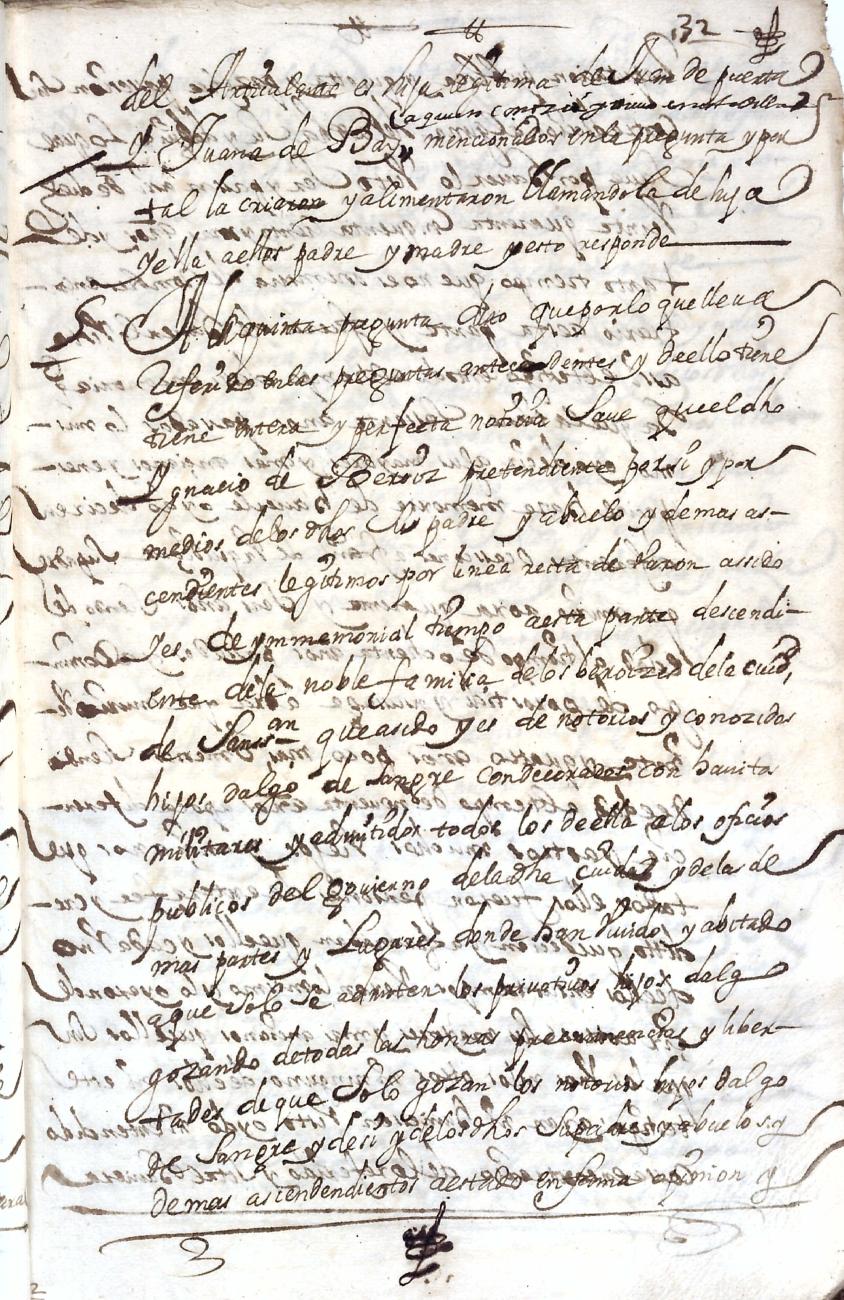 32
del Articulante es hija legitima de Juan de puerta
(a quien conozió y vive en esta villa)
y Juana de Bay, mencionados en la pregunta y por
tal la criaron y alimentaron llamandola de hija
y ella a ellos padre y madre y esto responde
5 A la quinta pregunta dijo que por lo que lleva
referido en las preguntas antecedentes y de ello tiene
tiene entera y perfecta noticia Save que el dho
Ygnacio de Berroiz pretendiente por si y por
medios de los dhos su padre y abuelo y demas as-
cendientes legitimos por linea recta de varon assido
y es de ymmemorial tiempo a esta parte descendi-
ente de la noble familia de los beroizes de la ciud,
de Sanssan que asido y es de notorios y conozidos
hijos dalgo de sangre condecorados con havitos
militares y admitidos todos los de ella a los oficios
publicos del govierno de la dha ciudad y de las de
mas partes y Lugares donde han vivido y abitado
a que solo se admiten los privativos hijos dalgo
gozando de todas las honras preeminencias y liber-
tades de que solo gozan los notorios hijos dalgo
de sangre y de si y de los dhos su padre y abuelos y
demas ascendendientos aestado en fama opinion y